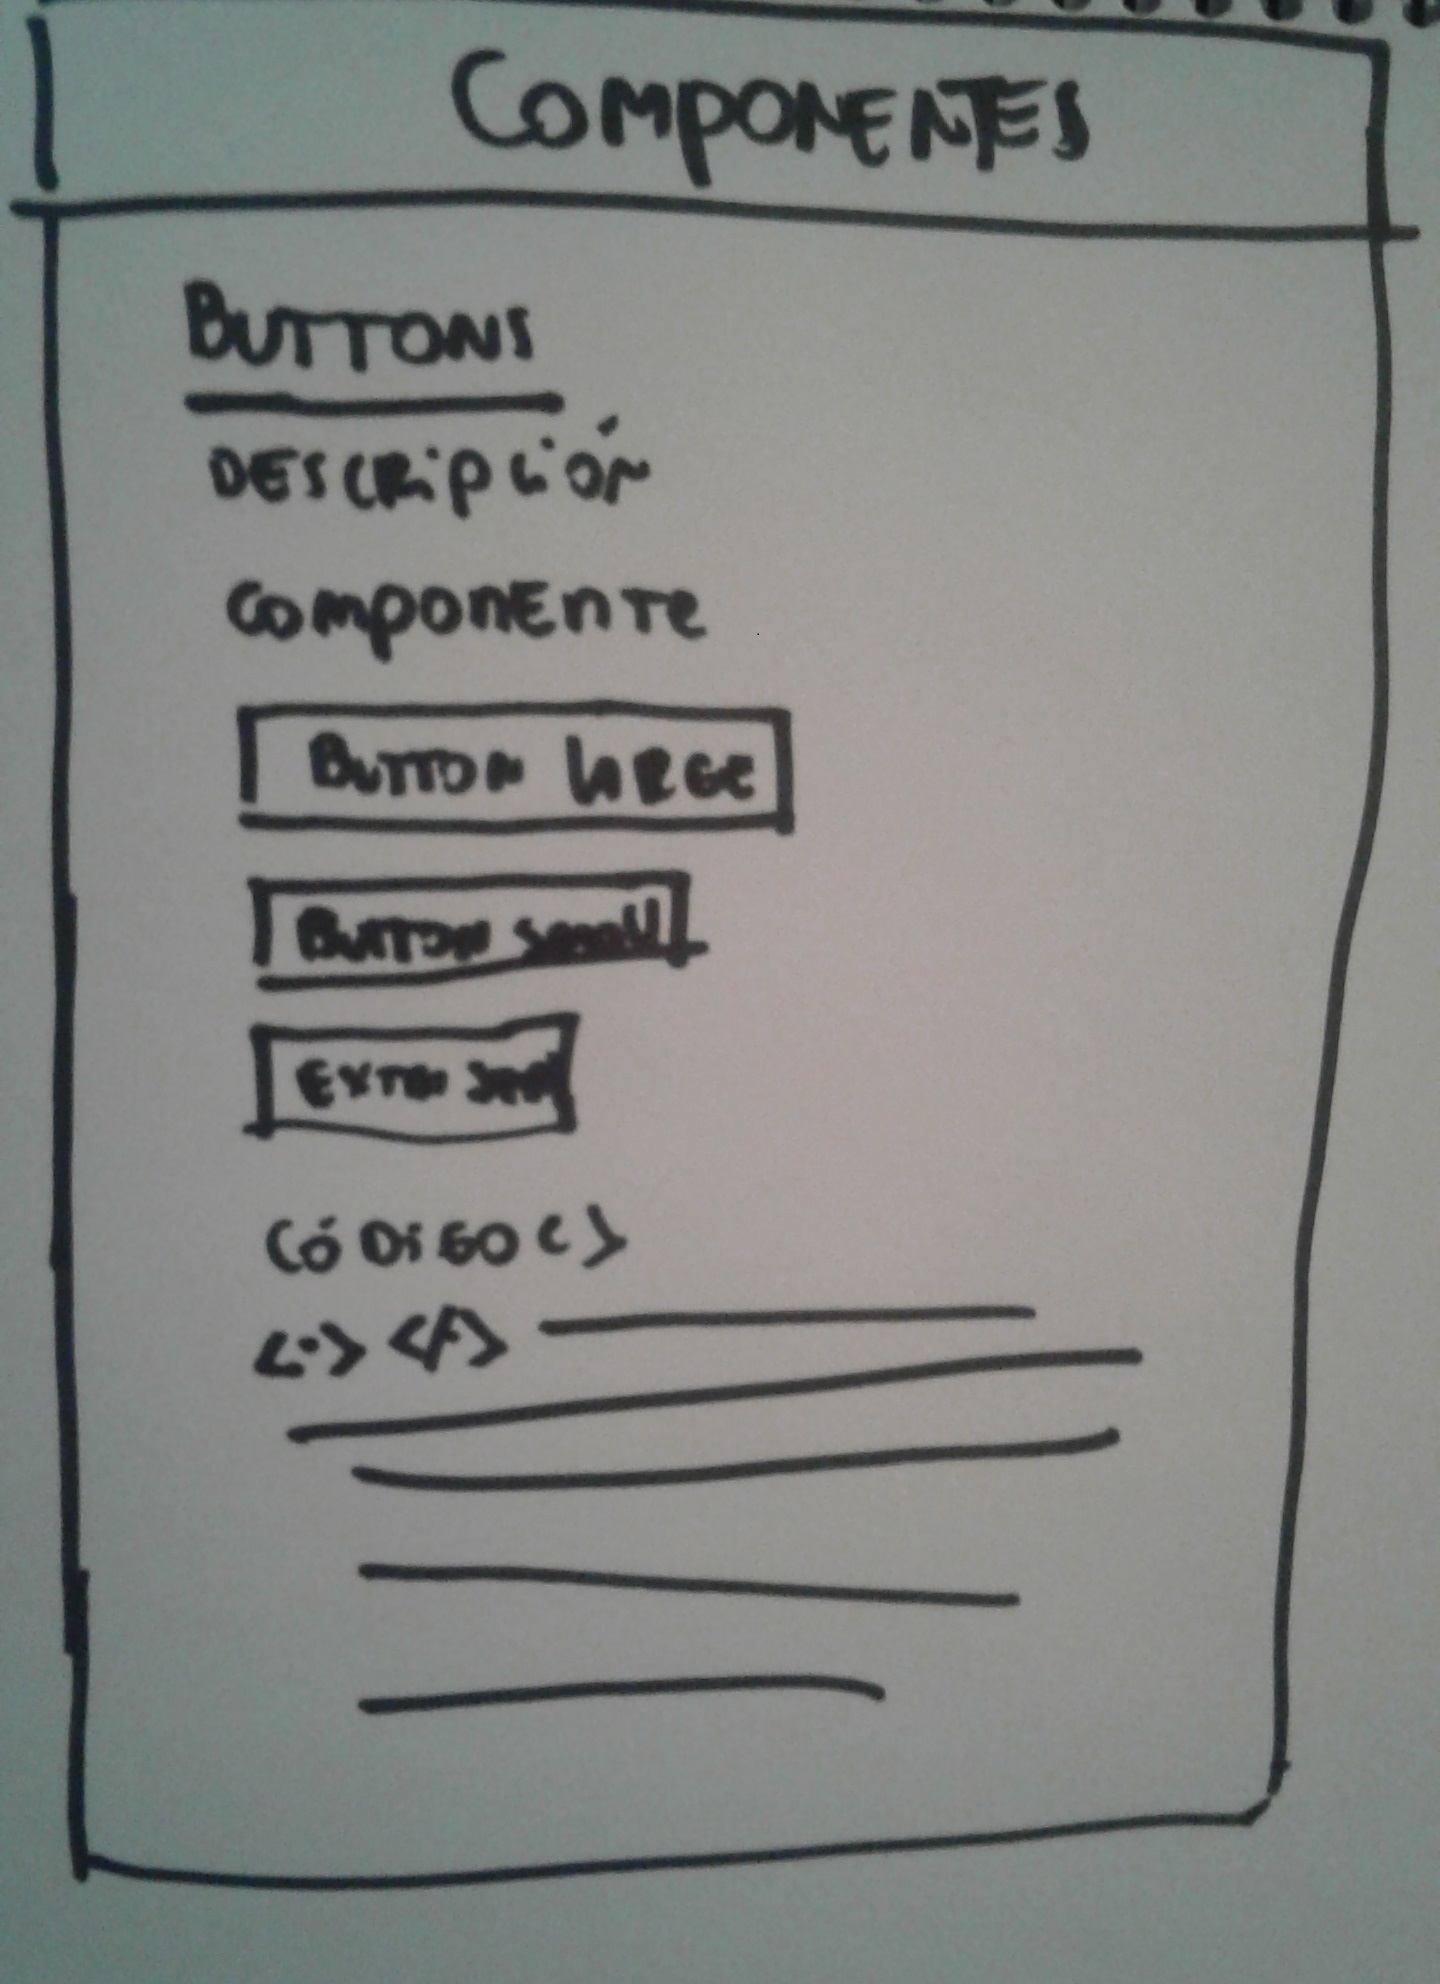 COMPONENTES
BUTTONS
DESCRIPCIÓN
COMPONENTE
BUTTON LARGE
BUTTON SMALL
EXTRA
CÓDIGO < >
<·> </>